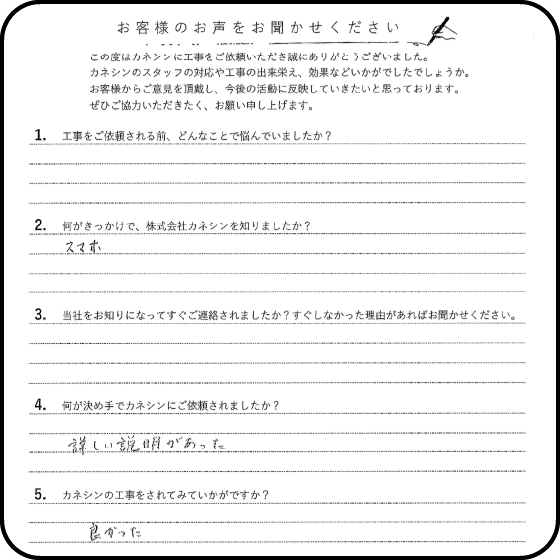 お客様のお声をお聞かせください
この度はカネシンに工事をご依頼いただき誠にありがとうございました。
カネシンのスタッフの対応や工事の出来栄え、効果などいかがでしたでしょうか。
お客様からご意見を頂戴し、今後の活動に反映していきたいと思っております。
ぜひご協力いただきたく、お願い申し上げます。
1. 工事をご依頼される前、どんなことで悩んでいましたか?
2. 何がきっかけで、株式会社カネシンを知りましたか?
スマホ
3. 当社をお知りになってすぐご連絡されましたか?すぐしなかった理由があればお聞かせください。
4. 何が決め手でカネシンにご依頼されましたか?
詳しい説明があった
5. カネシンの工事をされてみていかがですか?
良かった